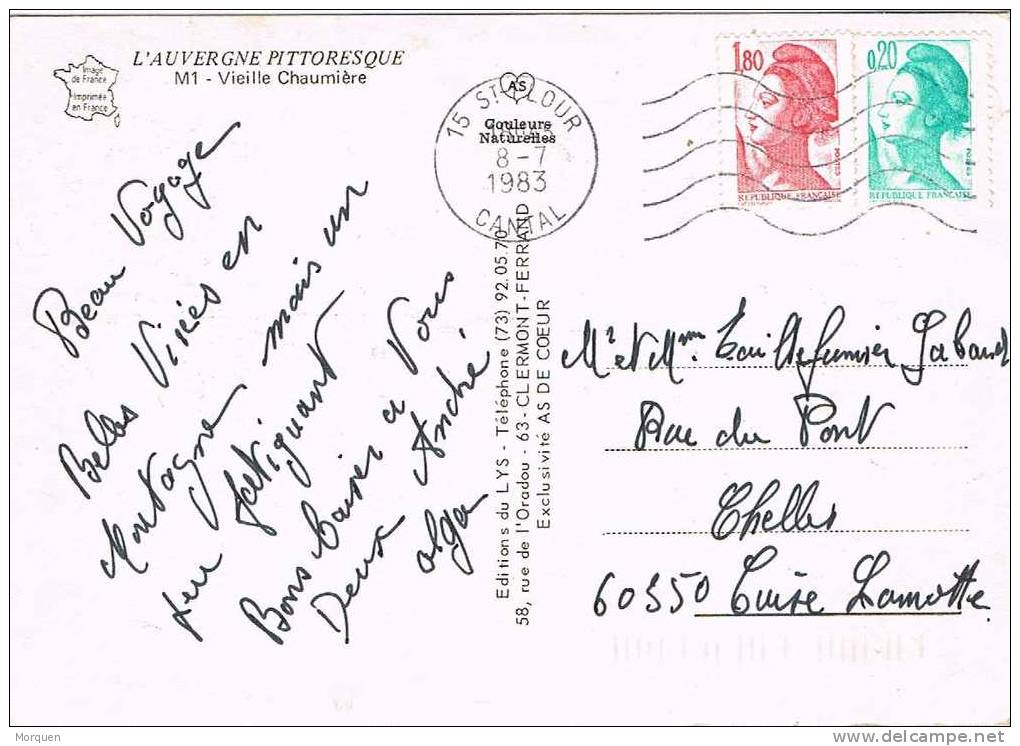 L'AUVERGNE PITTORESQUE
M1 - Vieille Chaumière
Image
de France
Imprimée
en France
AS
Couleurs
Naturelles
15 ST FLOUR
8-7
1983
CANTAL
1,80
REPUBLIQUE FRANÇAISE
0,20
REPUBLIQUE FRANÇAISE
Beau Voyage
Belles Visiés en
Montagne mais un
peu fatiguant
Bons baiser a Vous
Deux André
olga
Editions du LYS - Téléphone (73) 92.05.70
58, rue de l'Oradou - 63 - CLERMONT-FERRAND
Exclusivité AS DE COEUR
Mr et Mme
Rue du Pont
Chelles
60350 Cuise Lamotte
Morquen
www.delcampe.net